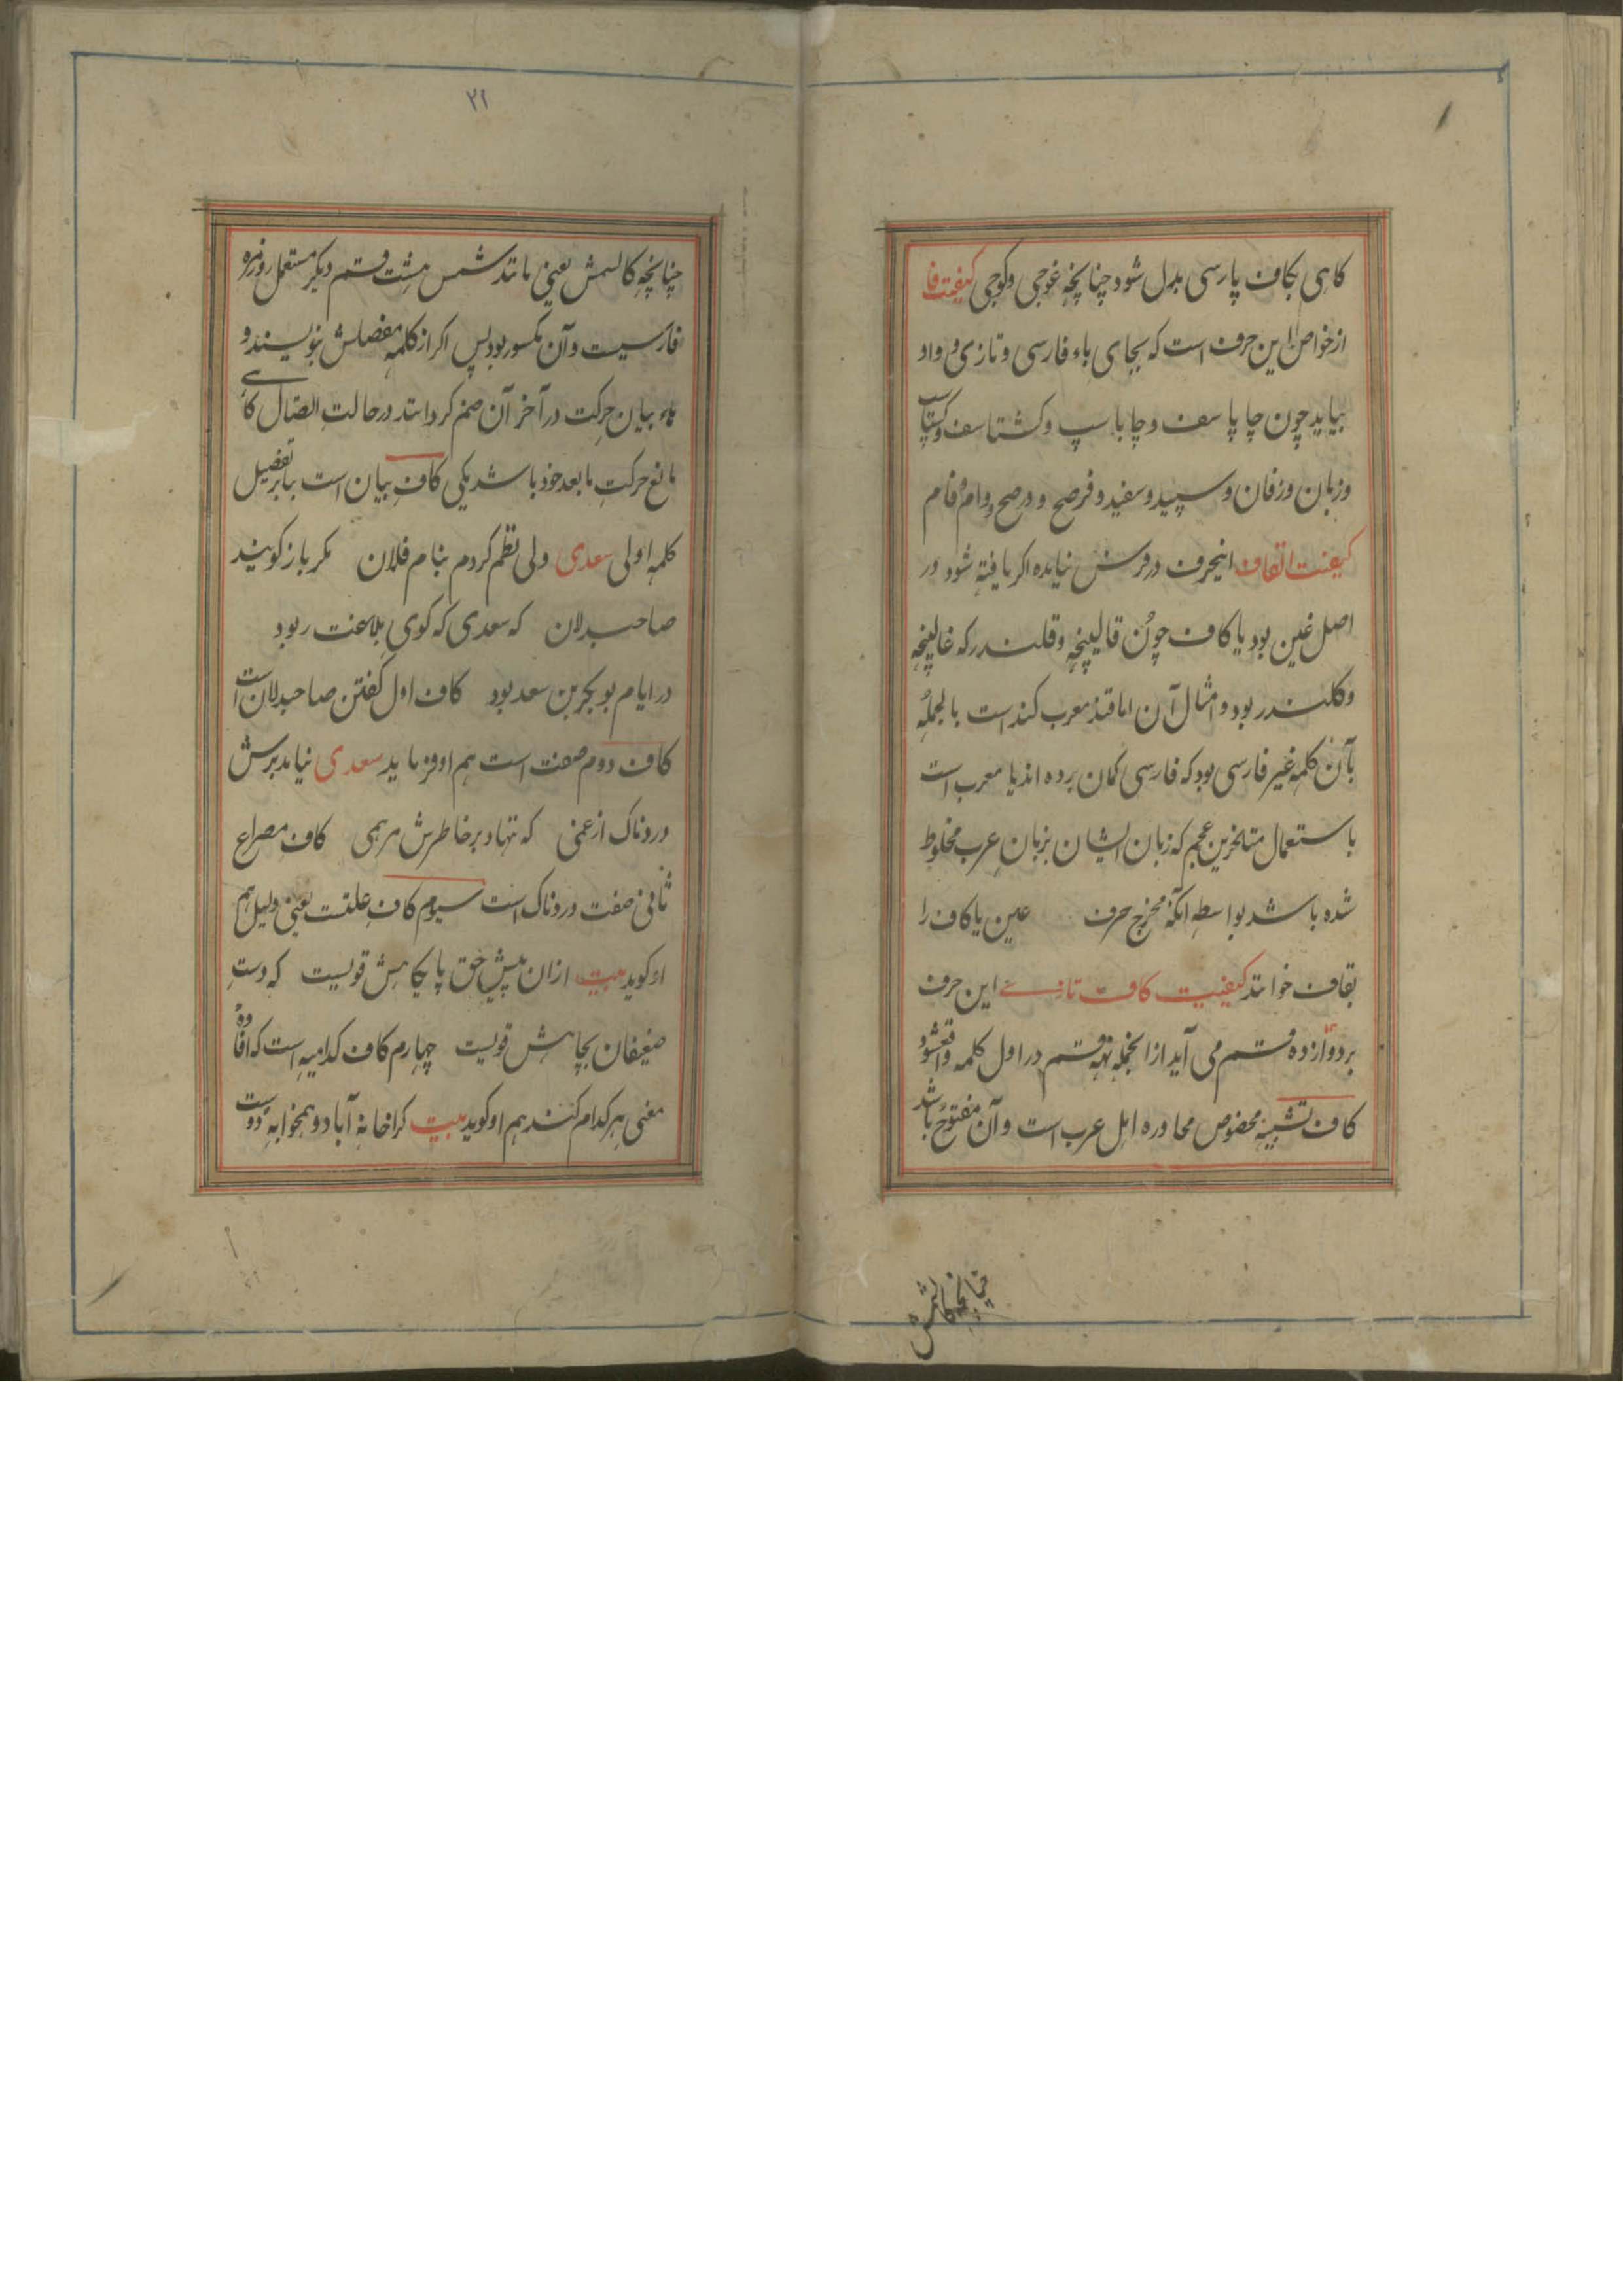 کاهی بکاف پارسی بدل شود چنانچه غوجی وکوجی کیفیت فا
از خواص این حرف است که بجای باء فارسی و تازی و واو
بیاید چون چاپا سف و چاباسپ و کشتاسف و کستاسپ
و زبان و زفان و سپید و سفید و فرصح و درصح و وام و فام
کیفیت القاف اینحرف در فرس نیامده اکر یافته شود در
اصل غین بود یا کاف چون قالیچه و قلندر که غالیچه
و کلندر بود و امثال آن اما قند معرب کند است بالجمله
یا آن کلمه غیر فارسی بود که فارسی کمان برده اند یا معرب است
باستعمال متاخرین عجم که زبان ایشان بزبان عرب مخلوط
شده باشد بواسطه آنکه مخرج حرف عین یا کاف را
بقاف خوانند کیفیت کاف تازے این حرف
بر دوازده قسم می آید از انجمله نه قسم در اول کلمه واقع شود
کاف تشبیه مخصوص محاوره اهل عرب است و آن مفتوح باشد
چنانچه کالشمس
۲۱
چنانچه کالشمس یعنی مانند شمس هشت قسم دیکر مستعمل روزمره
فارسیست و آن مکسور بود پس اکر از کلمه مفصلش بنویسند و
هاء بیان حرکت در آخر آن ضم کردانند در حالت اتصال کاهے
مانع حرکت ما بعد خود باشد یکی کاف بیان است بنابر تفصیل
کلمه اولی سعدی ولی نظم کردم بنام فلان مکر باز کویند
صاحبدلان که سعدی که کوی بلاغت ربود
در ایام بوبکر بن سعد بود کاف اول کفتن صاحبدلان است
کاف دوم صفت است هم او فرماید سعدی نیامد برش
دردناک از غمی که ننهاد بر خاطرش مرهمی کاف مصراع
ثانی صفت دردناک است سیوم کاف علتست یعنی دلیل هم
او کوید بیت ازان پیش حق پایکاهش قویست که دست
ضعیفان بجاهش قویست چهارم کاف کدامیه است که افاده
معنی هر کدام کنند هم او کوید بیت کرا خانه آباد و همخوابه دوست